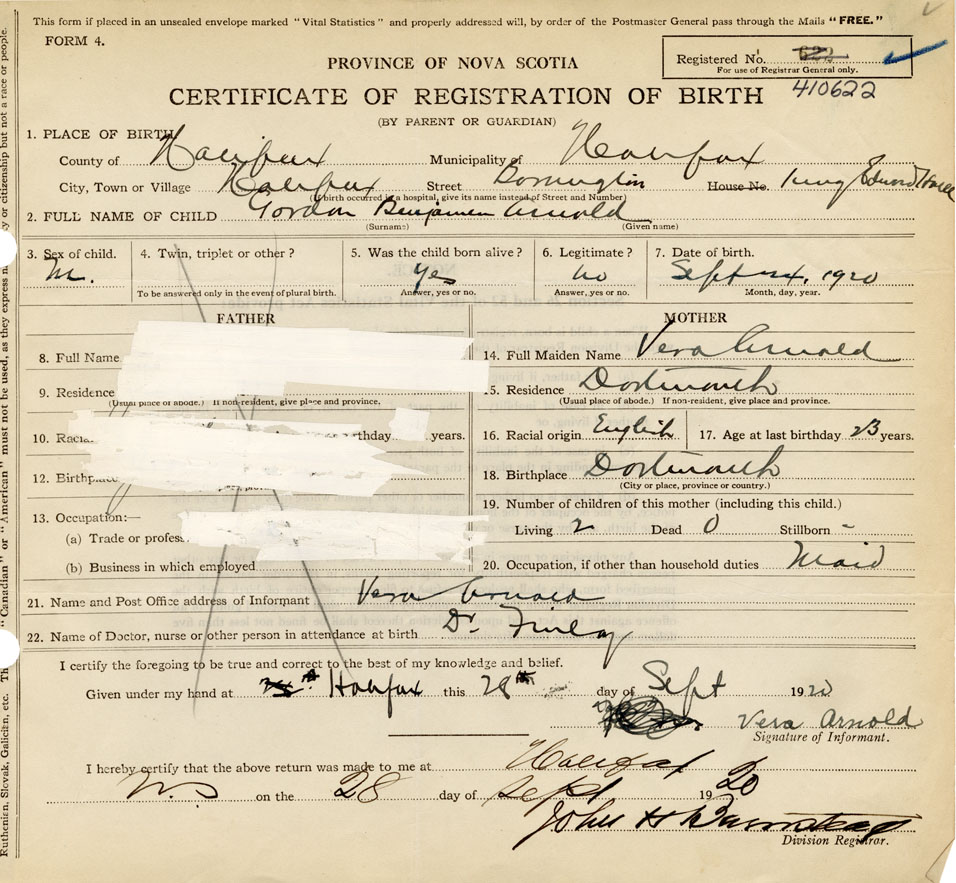 This form if placed in an unsealed envelope marked "Vital Statistics" and properly addressed will, by order of the Postmaster General pass through the Mails "FREE."
FORM 4.
Registered No.
For use of Registrar General only.
410622
PROVINCE OF NOVA SCOTIA
CERTIFICATE OF REGISTRATION OF BIRTH
(BY PARENT OR GUARDIAN)
1. PLACE OF BIRTH
County of Halifax Municipality of Halifax
City, Town or Village Halifax Street House No. King Edward
(If birth occurred in a hospital, give its name instead of Street and Number)
2. FULL NAME OF CHILD Gordon Benjamin Arnold
(Surname) (Given name)
3. Sex of child. 4. Twin, triplet or other? 5. Was the child born alive? 6. Legitimate? 7. Date of birth.
M. Yes no Sept 1920
To be answered only in the event of plural birth. Answer, yes or no. Answer, yes or no. Month, day, year.
FATHER MOTHER
8. Full Name 14. Full Maiden Name Vera Arnold
9. Residence 15. Residence Dartmouth
(Usual place of abode.) If non-resident, give place and province. (Usual place of abode.) If non-resident, give place and province.
10. Racial rthday years. 16. Racial origin English 17. Age at last birthday 23 years.
12. Birthplace 18. Birthplace Dartmouth
(City or place, province or country.)
13. Occupation:— 19. Number of children of this mother (including this child.)
(a) Trade or profes Living 2 Dead 0 Stillborn -
(b) Business in which employed 20. Occupation, if other than household duties Maid
21. Name and Post Office address of Informant Vera Arnold
22. Name of Doctor, nurse or other person in attendance at birth Dr. Finlay
I certify the foregoing to be true and correct to the best of my knowledge and belief.
Given under my hand at Halifax this 28th day of Sept 1920
Vera Arnold
Signature of Informant.
I hereby certify that the above return was made to me at Halifax
N.S on the 28 day of Sept 1920
John H
Division Registrar.
Ruthenian, Slovak, Galician, etc. "Canadian" or "American" must not be used, as they express citizenship but not a race or people.